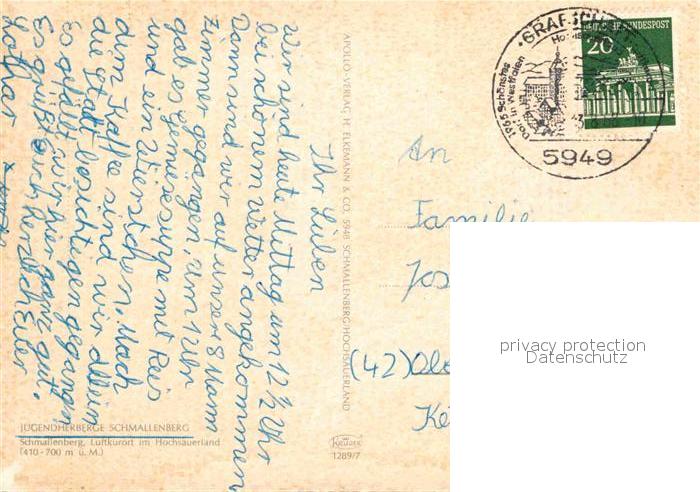 Ihr Lieben
Wir sind heute Mittag um 12 ½ Uhr
bei schönem Wetter angekommen
Dann sind wir auf unser 8 Mann
Zimmer gegangen, um 1 Uhr
gab es Gemüsesuppe mit Reis
und ein Würstchen. Nach
dem Kaffe sind wir allein
die Stadt besichtigen gegangen
Es gefällt mir hier ganz gut.
Es grüßt euch herzlich euer
Lothar
JUGENDHERBERGE SCHMALLENBERG
Schmallenberg, Luftkurort im Hochsauerland
(410-700 m ü. M.)
APOLLO-VERLAG H. ELKEMANN & CO. 5948 SCHMALLENBERG/HOCHSAUERLAND
KRÜGER
1289/7
GRAFSCH
1966 Schönstes
Dorf in Westfalen
5949
DEUTSCHE BUNDESPOST
20
An
Familie
Jos
(42) Obe
privacy protection
Datenschutz